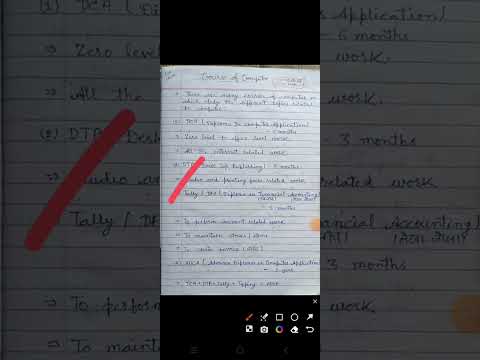 (1) DCA ( Di
⇒ Zero leve
⇒ All the
(2) DTP ( Desk
Tally / DF
⇒ To perform
⇒ To mainta
Course of Computer
There are many courses of computer in
which study the different topics related
to computer.
(1) DCA ( Diploma In Computer Application)
- 6 months
⇒ Zero level to office level work.
⇒ All the internet related work.
(2) DTP ( Desk Top Publishing) - 3 months
and printing press related work.
Tally / DFA ( Diploma in Financial Accounting)
- 3 months
⇒ To perform account related work.
⇒ To maintain store / items
⇒ To
(4) ADCA ( Advance Diploma in Computer Application)
- 1 year
⇒ DCA + DTP + Tally + Typing = ADCA
Application)
- 6 months
work.
- 3 months
work.
Financial Accounting)
- 3 months
work.